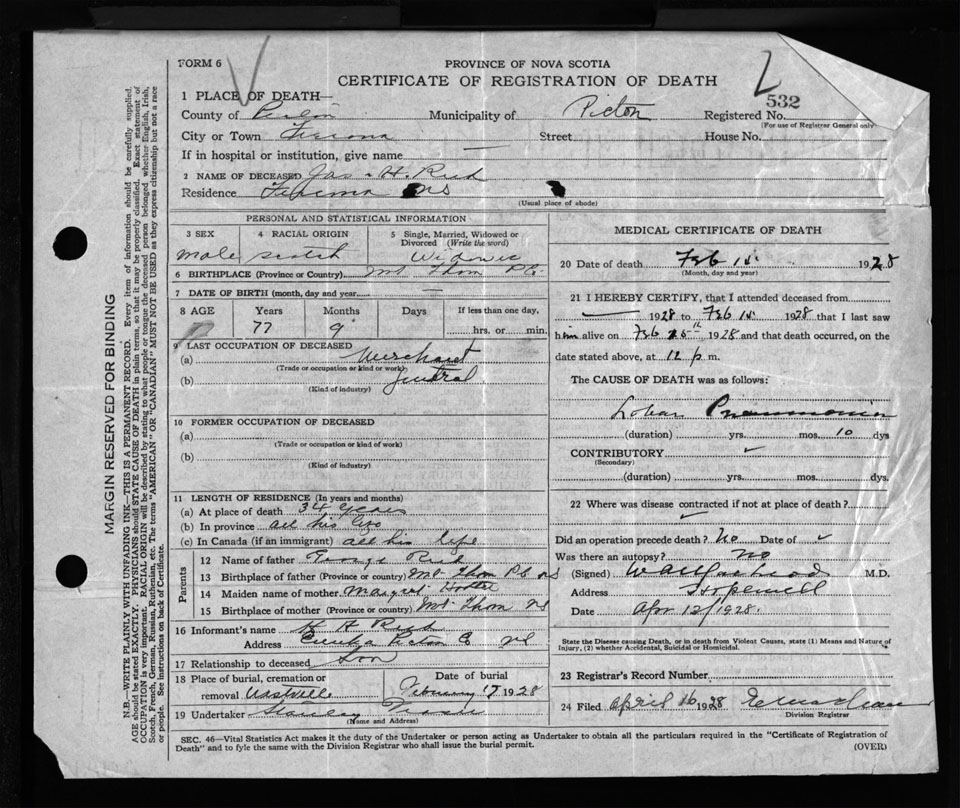 FORM 6
PROVINCE OF NOVA SCOTIA
CERTIFICATE OF REGISTRATION OF DEATH
532
1 PLACE OF DEATH—
County of Municipality of Picton Registered No.
(For use of Registrar General only)
City or Town Street House No.
If in hospital or institution, give name —
2 NAME OF DECEASED Jas. H. Reid
Residence NS
(Usual place of abode)
PERSONAL AND STATISTICAL INFORMATION
3 SEX 4 RACIAL ORIGIN 5 Single, Married, Widowed or Divorced (Write the word)
male scotch
6 BIRTHPLACE (Province or Country) Mt Thom P.C.
7 DATE OF BIRTH (month, day and year) —
8 AGE Years Months Days If less than one day,
77 9 hrs. or min.
9 LAST OCCUPATION OF DECEASED
(a) Merchant
(Trade or occupation or kind of work)
(b) General
(Kind of industry)
10 FORMER OCCUPATION OF DECEASED
(a)
(Trade or occupation or kind of work)
(b)
(Kind of industry)
11 LENGTH OF RESIDENCE (In years and months)
(a) At place of death 34 years
(b) In province all his life
(c) In Canada (if an immigrant) all his life
Parents
12 Name of father George Reid
13 Birthplace of father (Province or country) Mt Thom P.C. NS
14 Maiden name of mother Margret
15 Birthplace of mother (Province or country) Mt. Thom NS
16 Informant's name H A Reid
Address Picton Co NS
17 Relationship to deceased Son
18 Place of burial, cremation or removal Eastville Date of burial February 17 1928
19 Undertaker Stanley
(Name and Address)
MEDICAL CERTIFICATE OF DEATH
20 Date of death Feb 15 1928
(Month, day and year)
21 I HEREBY CERTIFY, that I attended deceased from
— 1928 to Feb 15 1928 that I last saw
him alive on Feb 15th 1928 and that death occurred, on
date stated above, at 12 p m.
The CAUSE OF DEATH was as follows:
Lobar Pneumonia
(duration) yrs. mos. 10 dys
CONTRIBUTORY
(Secondary)
(duration) yrs. mos. dys.
22 Where was disease contracted if not at place of death?
Did an operation precede death? No Date of
Was there an autopsy? No
(Signed) M.D.
Address Hopewell
Date Apr 12/1928.
State the Disease causing Death, or in death from Violent Causes, state (1) Means and Nature of
Injury, (2) whether Accidental, Suicidal or Homicidal.
23 Registrar's Record Number
24 Filed April 16 1928
Division Registrar
SEC. 46—Vital Statistics Act makes it the duty of the Undertaker or person acting as Undertaker to obtain all the particulars required in the "Certificate of Registration of
Death" and to fyle the same with the Division Registrar who shall issue the burial permit.
(OVER)
MARGIN RESERVED FOR BINDING
N.B.—WRITE PLAINLY WITH UNFADING INK—THIS IS A PERMANENT RECORD. Every item of information should be carefully supplied.
AGE should be stated EXACTLY. PHYSICIANS should STATE CAUSE OF DEATH in plain terms, so that it may be properly classified. Exact statement of
OCCUPATION is very important. RACIAL ORIGIN will be described by stating to what people or tongue the deceased person belonged whether English, Irish,
Scotch, French, German, Russian, Ruthenian, etc. The terms "AMERICAN" or "CANADIAN" MUST NOT BE USED as they express citizenship but not a race
or people. See instructions on back of Certificate.